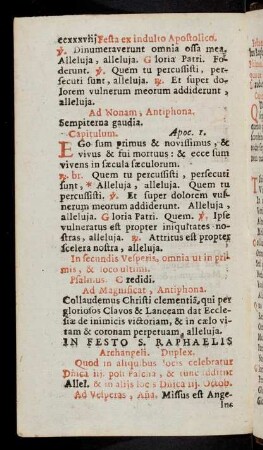 ccxxxviij Festa ex indulto Apostolico.
℣. Dinumeraverunt omnia ossa mea.
Alleluja, alleluja. Gloria Patri. Fo-
derunt. ℣. Quem tu percussisti, per-
secuti sunt, alleluja. ℟. Et super do-
lorem vulnerum meorum addiderunt,
alleluja.
Ad Nonam, Antiphona.
Sempiterna gaudia.
Capitulum. Apoc. 1.
EGo sum primus & novissimus, &
vivus & fui mortuus: & ecce sum
vivens in sæcula sæculorum.
℟. br. Quem tu percussisti, persecuti
sunt, * Alleluja, alleluja. Quem tu
percussisti. ℣. Et super dolorem vul-
nerum meorum addiderunt. Alleluja,
alleluja. Gloria Patri. Quem. ℣. Ipse
vulneratus est propter iniquitates no-
stras, alleluja. ℟. Attritus est propter
scelera nostra, alleluja.
In secundis Vesperis, omnia ut in pri-
mis, & loco ultimi.
Psalmus. Credidi.
Ad Magnificat, Antiphona.
Collaudemus Christi clementiā, qui per
gloriosos Clavos & Lanceam dat Eccle-
siæ de inimicis victoriam, & in cælo vi-
tam & coronam perpetuam, alleluja.
IN FESTO S. RAPHAELIS
Archangeli. Duplex.
Quod in aliquibus locis celebratur
Dñica iij. post Pascha, & tunc additur
Allel. & in aliis locis Dñica iij. Octob.
Ad Vesperas, Aña. Missus est Ange-